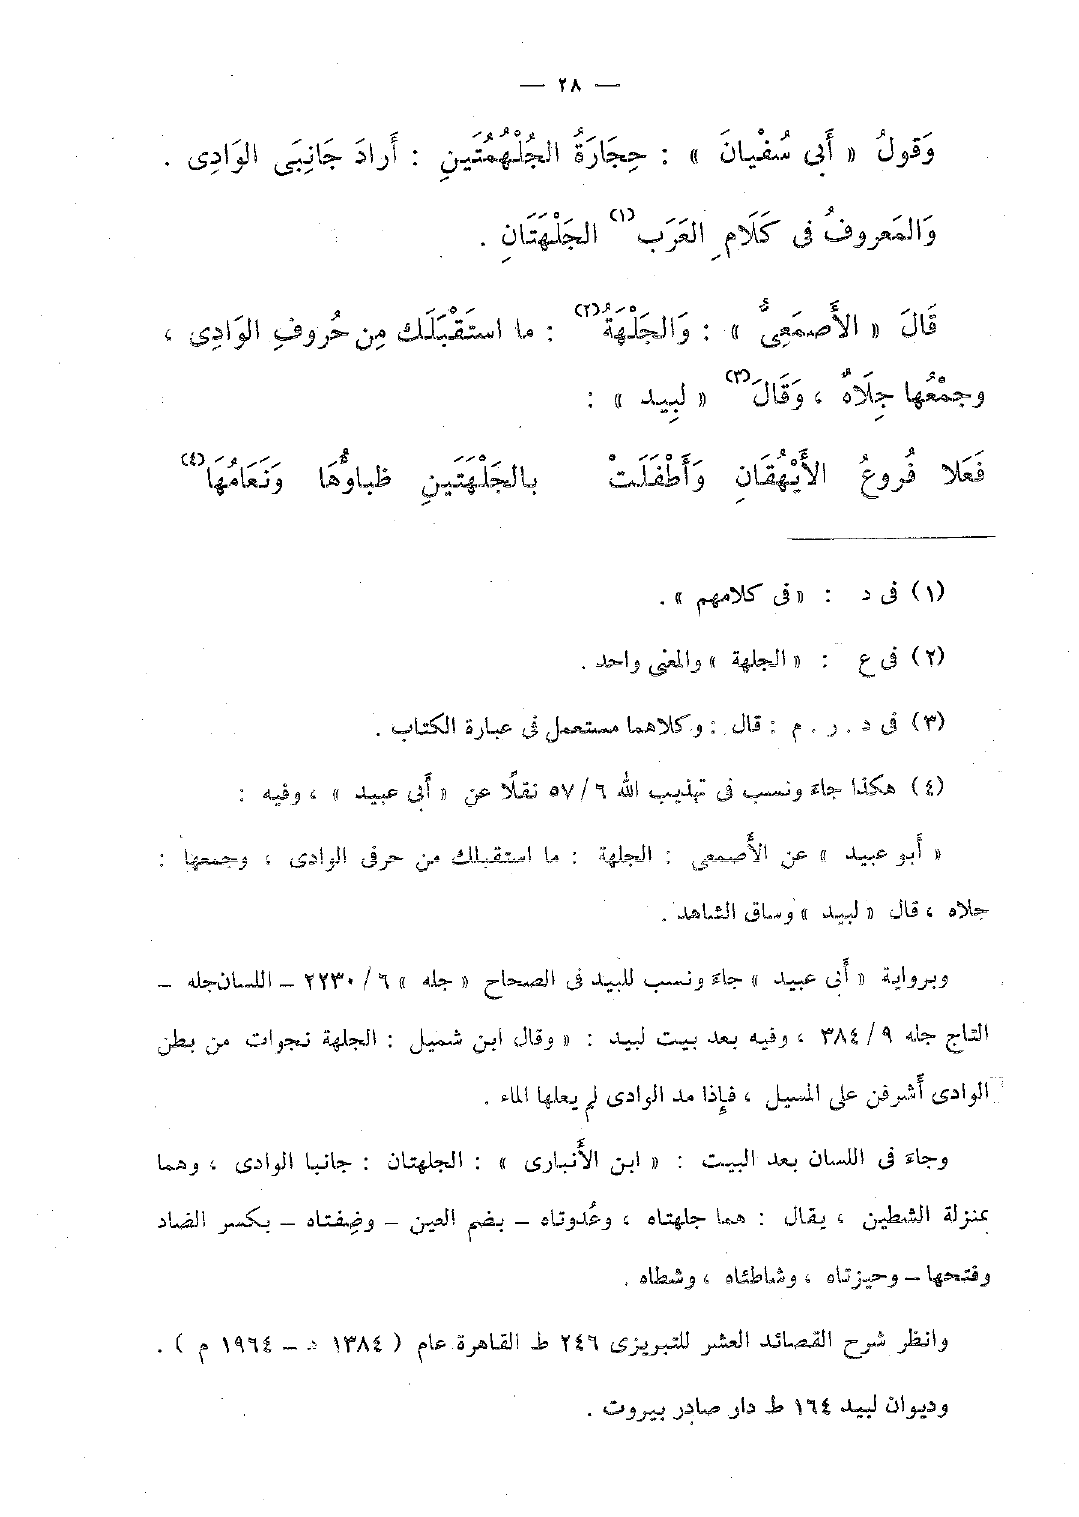 — ٢٨ —
وَقولُ « أَبى سُفْيانَ » : حِجَارَةُ الجُلْهُمُتَينِ : أَرادَ جَانِبَى الوَادِى .
وَالمَعروفُ فى كَلَامِ العَرَب(١) الجَلْهَتَانِ .
قَالَ « الأَصمَعِىُّ » : وَالجَلْهَةُ(٢) : ما استَقْبَلَك مِن حُروفِ الوَادِى ،
وجمْعُها جِلَاهٌ ، وَقَالَ(٣) « لبِيد » :
فَعَلا فُروعُ الأَيْهُقَانِ وَأَطْفَلَتْ بالجَلْهَتَينِ ظباوُّهَا وَنَعَامُهَا(٤)
(١) فى د : « فى كلامهم » .
(٢) فى ع : « الجلهة » والمعنى واحد .
(٣) فى د . ر . م : قال : وكلاهما مستعمل فى عبارة الكتاب .
(٤) هكذا جاءَ ونسب فى تهذيب الله ٦/ ٥٧ نقلًا عن « أَبى عبيد » ، وفيه :
« أَبو عبيد » عن الأَصمعى : الجلهة : ما استقبلك من حرفى الوادى ، وجمعها :
جلاه ، قال « لبيد » وساق الشاهد .
وبرواية « أَبى عبيد » جاءَ ونسب للبيد فى الصحاح « جله » ٦/ ٢٢٣٠ – اللسان جله –
التاج جله ٩/ ٣٨٤ ، وفيه بعد بيت لبيد : « وقال ابن شميل : الجلهة نجوات من بطن
الوادى أَشرفن على المسيل ، فإِذا مد الوادى لم يعلها الماء .
وجاءَ فى اللسان بعد البيت : « ابن الأَنبارى » : الجلهتان : جانبا الوادى ، وهما
بمنزلة الشطين ، يقال : هما جلهتاه ، وعُدوتاه – بضم العين – وضِفتاه – بكسر الضاد
وفتحها – وحيزتاه ، وشاطئاه ، وشطاه .
وانظر شرح القصائد العشر للتبريزى ٢٤٦ ط القاهرة عام ( ١٣٨٤ ه – ١٩٦٤ م ) .
وديوان لبيد ١٦٤ ط دار صادر بيروت .